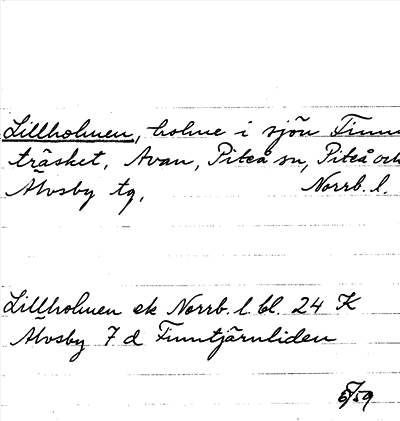 Lillholmen, holme i sjön Finn
träsket, Avan, Piteå sn, Piteå och
Älvsby tg, Norrb. l.
Lillholmen ek Norrb. l. bl. 24 K
Älvsby 7 d Finntjärnliden